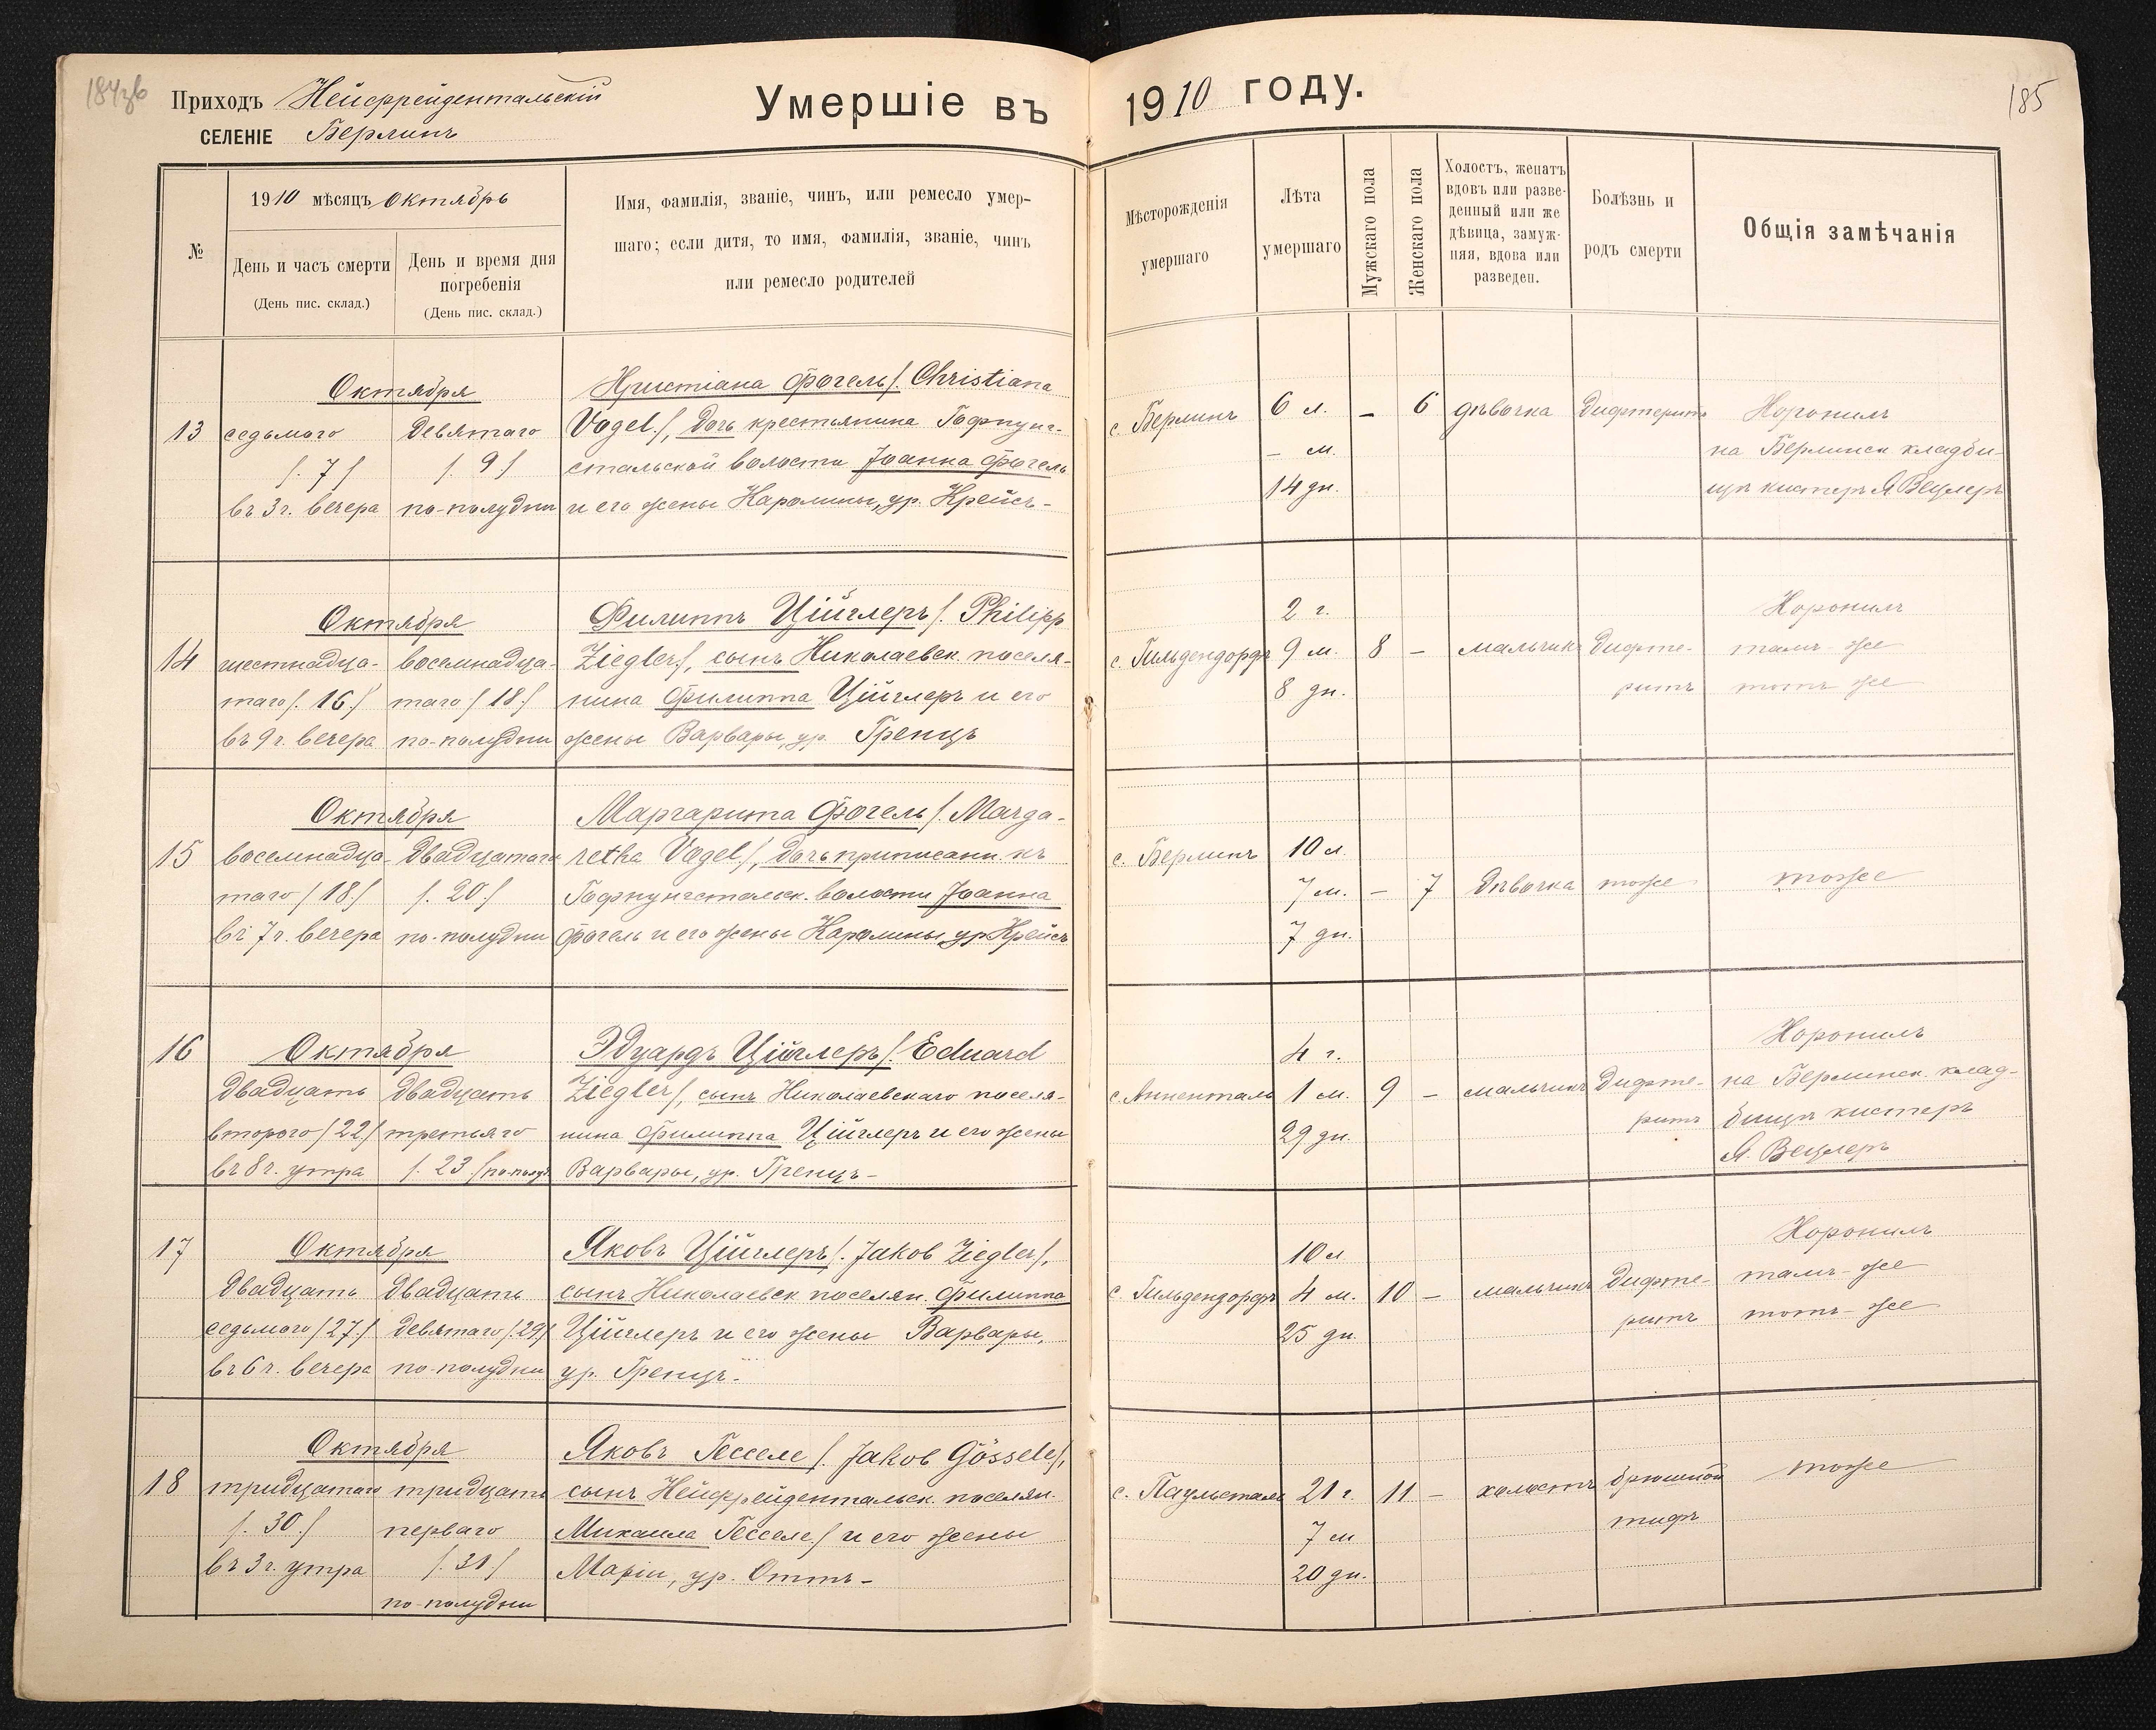 184об
Приходъ Нейфрейдентальскій
СЕЛЕНІЕ Берлинъ
Умершіе въ 1910 году.
185
№
1910 мѣсяцъ Октябрь
День и часъ смерти
(День пис. склад.)
День и время дня
погребенія
(День пис. склад.)
Имя, фамилія, званіе, чинъ, или ремесло умер-
шаго; если дитя, то имя, фамилія, званіе, чинъ
или ремесло родителей
Мѣсторожденія
умершаго
Лѣта
умершаго
Мужскаго пола
Женскаго пола
Холостъ, женатъ
вдовъ или разве-
денный или же
дѣвица, замуж-
няя, вдова или
разведен.
Болѣзнь и
родъ смерти
Общія замѣчанія
13
Октября
седьмого
/. 7 /
въ 3 ч. вечера
девятаго
/. 9 ./
по-полудни
Христіана Фогель /. Christiana
Vogel ./, дочь крестьянина Гофнунг-
стальской волости Іоанна Фогель
и его жены Каролины, ур. Крейсъ-
с. Берлинъ
6 л.
- м.
14 дн.
-
6
дѣвочка
Дифтеритъ
Хоронилъ
на Берлинск. кладби-
щѣ кистеръ Я. Вецлеръ
14
Октября
шестнадца-
таго /. 16 ./
въ 9 ч. вечера
восемнадца-
таго / 18 ./
по-полудни
Филиппъ Ційглеръ /. Philipp
Ziegler ./, сынъ Николаевск. поселя-
нина Филиппа Ційглеръ и его
жены Варвары, ур. Гренцъ
с. Гильдендорфъ
2 г.
9 м.
8 дн.
8
-
мальчикъ
Дифте-
ритъ
Хоронилъ
тамъ-же
тотъ же
15
Октября
восемнадца-
таго / 18 ./
въ 7 ч. вечера
двадцатаго
/. 20 ./
по-полудни
Маргарита Фогель /. Marga-
retha Vogel ./, дочь приписанн. къ
Гофнунгстальск. волости Іоанна
Фогель и его жены Каролины, ур. Крейсъ
с. Берлинъ
10 л.
7 м.
7 дн.
-
7
дѣвочка
тоже
тоже
16
Октября
двадцать
второго / 22 ./
въ 8 ч. утра
двадцать
третьяго
/. 23 ./ по-полуд.
Эдуардъ Ційглеръ /. Eduard
Ziegler /, сынъ Николаевскаго поселя-
нина Филиппа Ційглеръ и его жены
Варвары, ур. Гренцъ-
с. Анненталь
4 г.
1 м.
29 дн.
9
-
мальчикъ
Дифте-
ритъ
Хоронилъ
на Берлинск. клад-
бищѣ кистеръ
Я. Вецлеръ
17
Октября
двадцать
седьмого / 27 ./
въ 6 ч. вечера
двадцать
девятаго /. 29 /
по-полудни
Яковъ Ційглеръ /. Jakob Ziegler /,
сынъ Николаевск. поселян. Филиппа
Ційглеръ и его жены Варвары,
ур. Гренцъ.
с. Гильдендорфъ
10 л
4 м.
25 дн.
10
-
мальчикъ
Дифте-
ритъ
Хоронилъ
тамъ-же
тотъ-же
18
Октября
тридцатаго
/. 30 ./
въ 3 ч. утра
тридцать
перваго
/. 31 /
по-полудни
Яковъ Гесселе /. Jakob Gössele /,
сынъ Нейфрейдентальск. поселян.
Михаила Гесселе / и его жены
Маріи, ур. Оттъ-
с. Паульсталь
21 г.
7 м
20 дн.
11
-
холостъ
брюшной
тифъ
тоже